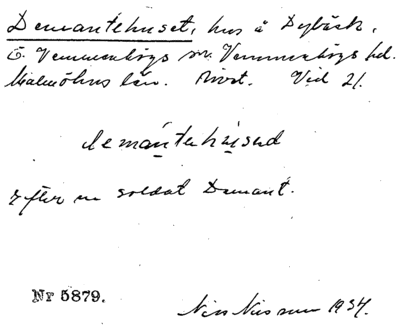 Demantehuset, hus å Dybäck,
Ö. Vemmenhögs sn. Vemmenhögs hd.
Malmöhus län. Rivet. Vid 21.
demántəhúsəd
Efter en soldat Demant.
Nr 5879.
Nils Nilsson 1934.